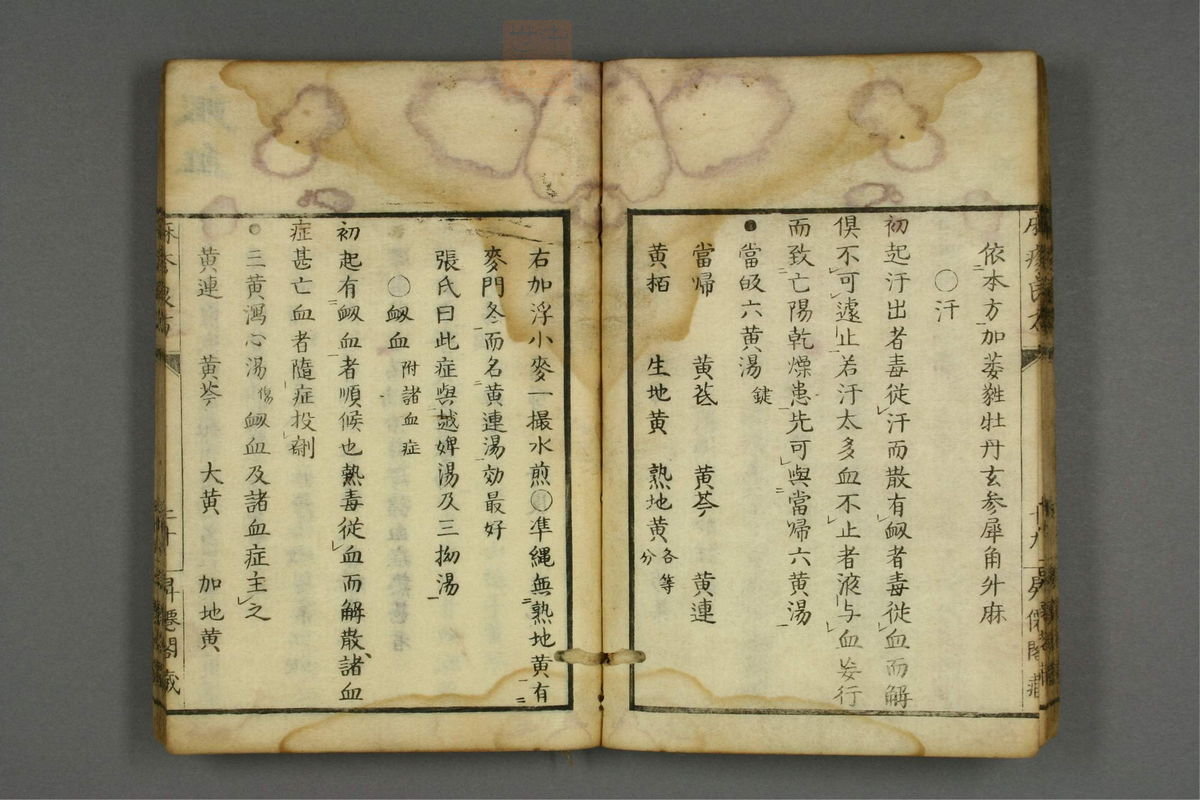 依本方加萎蕤牡丹玄参犀角升麻
〇汗
初起汗出者毒従汗而散有衂者毒従血而解
倶不可遽止若汗太多血不止者液与血妄行
而致亡陽乾燥患先可與當帰六黄湯
●當皈六黄湯 鍵
當帰 黄芪 黄芩 黄連
黄栢 生地黄 熟地黄 各等分
右加浮小麥一撮水煎〇準縄無熟地黄有
麥門冬而名黄連湯効最好
張氏曰此症與越婢湯及三拗湯
〇衂血 附諸血症
初起有衂血者順候也熱毒従血而解散諸血
症甚亡血者隨症投剤
●三黄瀉心湯 傷 衂血及諸血症主之
黄連 黄芩 大黄 加地黄